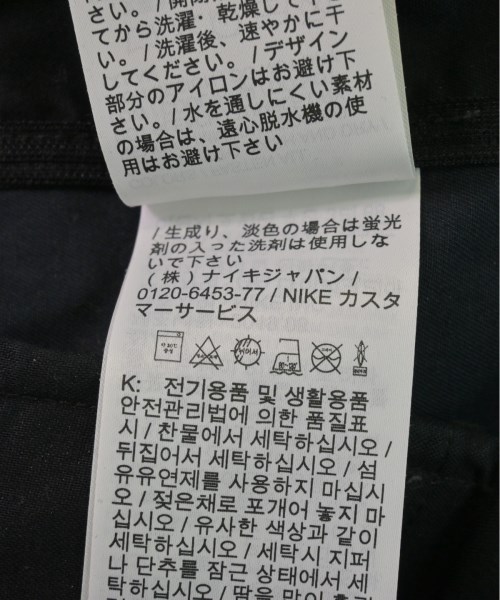 さい。/開閉
てから洗濯・乾燥して下
い。/洗濯後、速やかに干
してください。/デザイン
部分のアイロンはお避け下
さい。/水を通しにくい素材
の場合は、遠心脱水機の使
用はお避け下さい
/生成り、淡色の場合は蛍光
剤の入った洗剤は使用しな
いで下さい
(株)ナイキジャパン/
0120-6453-77/NIKE カスタ
マーサービス
K: 전기용품 및 생활용품
안전관리법에 의한 품질표
시/찬물에서 세탁하십시오/
뒤집어서 세탁하십시오/섬
유유연제를 사용하지 마십시
오/젖은채로 포개어 놓지 마
십시오/유사한 색상과 같이
세탁하십시오/세탁시 지퍼
나 단추를 잠근 상태에서 세
탁하십시오/땀을 많이